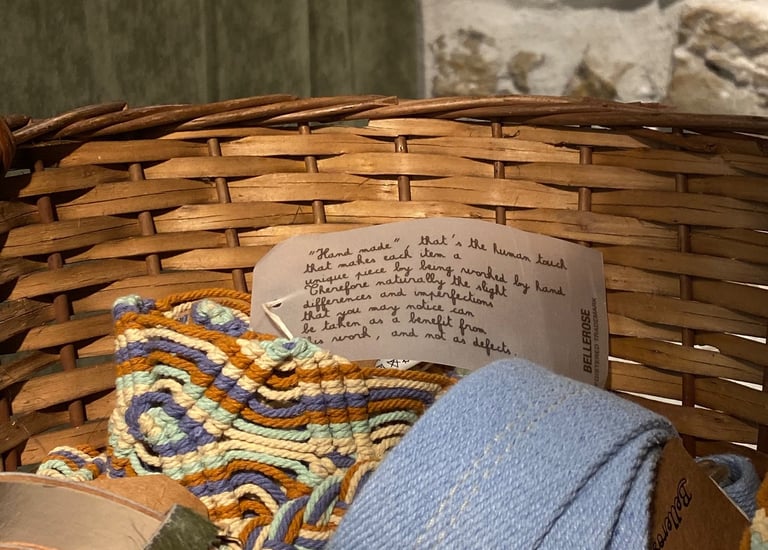 "Hand made", that's the human touch
that makes each item a
unique piece by being worked by hand
Therefore naturally the slight
differences and imperfections
that you may notice can
be taken as a benefit from
his work, and not as defects.
BELLEROSE
REGISTERED TRADEMARK
Bellerose